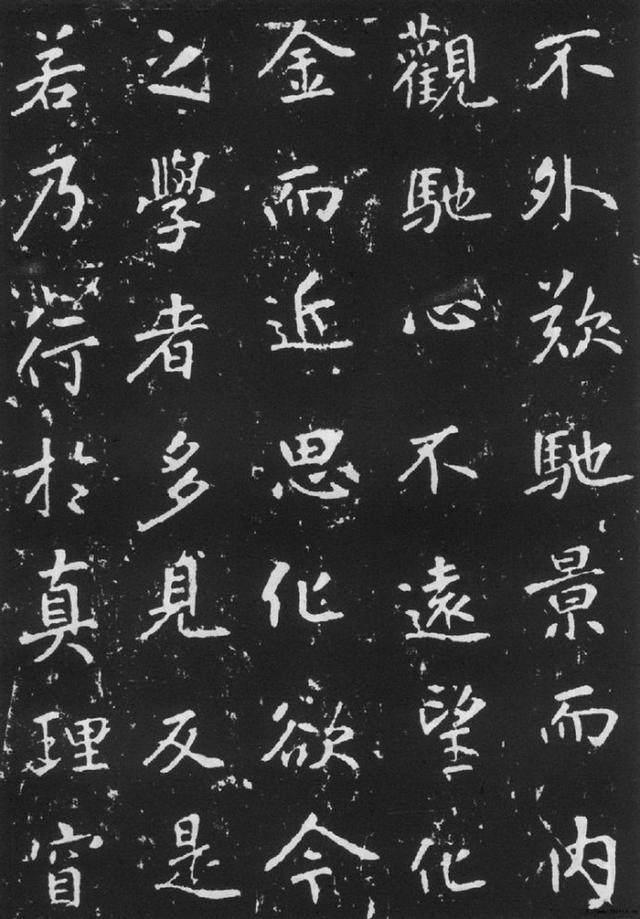 不外馳景而内
觀馳心不遠望化
金而近思化欲今
之學者多見反是
若乃於真理窅